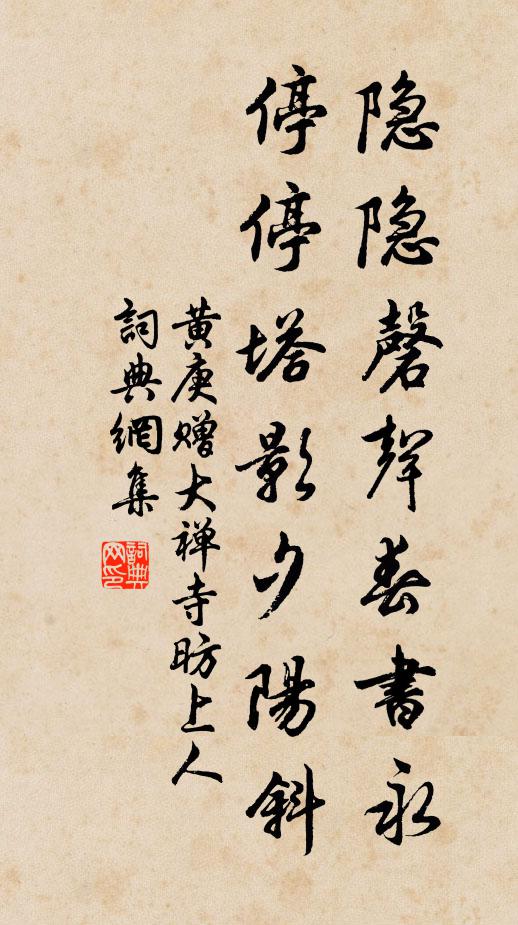 隐隐磬聲春書永
停停塔影夕陽斜
黄庚赠大禅寺昉上人
詞典網集
詞典网印